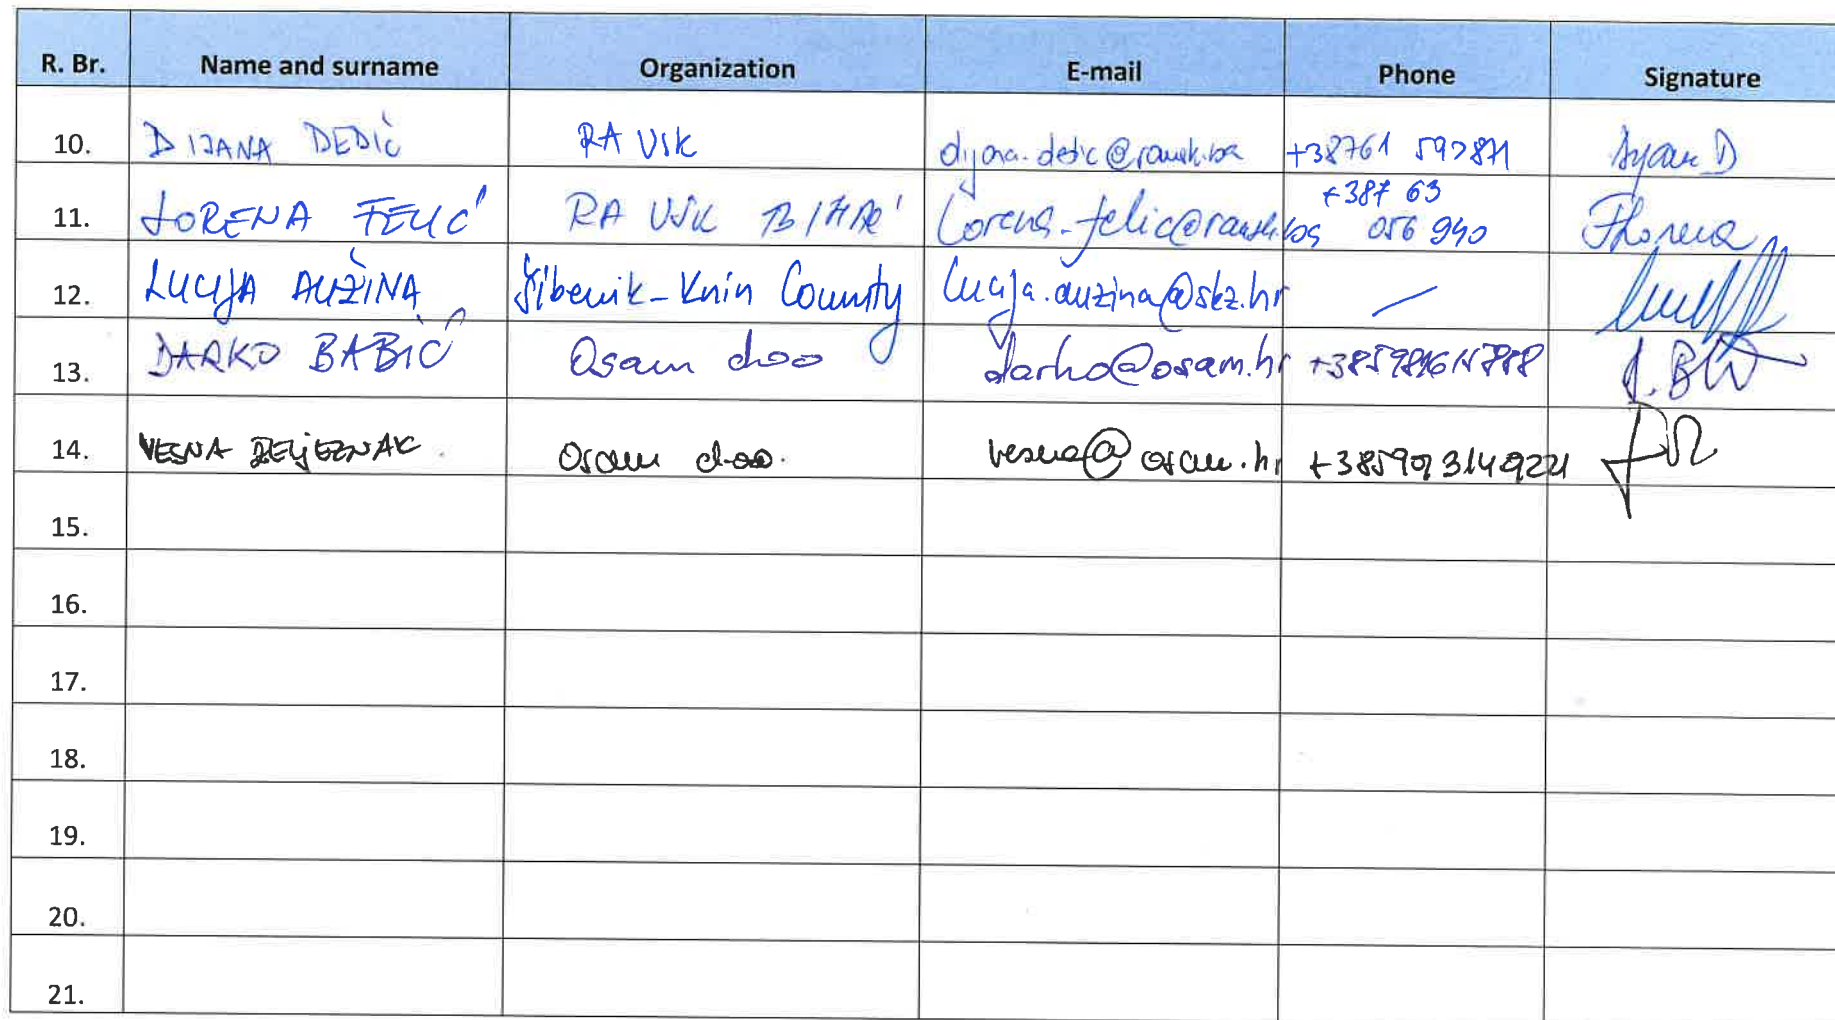 R. Br. Name and surname Organization E-mail Phone Signature
10. DIJANA DEDIĆ RA USK dijana.dedic@rausk.ba +38761
11. LORENA FELIĆ RA USK BIHAĆ lorena.felic@rausk.ba +387 63 056 940
12. LUCIJA AUŽINA Šibenik-Knin County lucija.auzina@skz.hr –
13. DARKO BABIĆ Osam doo darko@osam.hr
14. VESNA ŽELJEZNAK Osam doo. vesna@osam.hr
15.
16.
17.
18.
19.
20.
21.